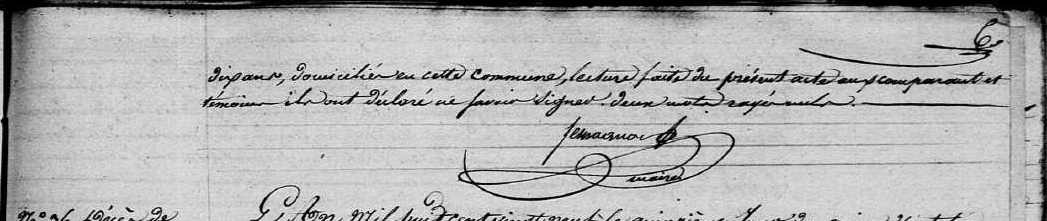 6
dix ans, domiciliés en cette commune, lecture faite du présent acte aux comparant et
témoins ils ont déclaré ne savoir signer. deux mots rayés nuls.
maire
L'An mil huit cent vingt neuf le quinzième Jour du